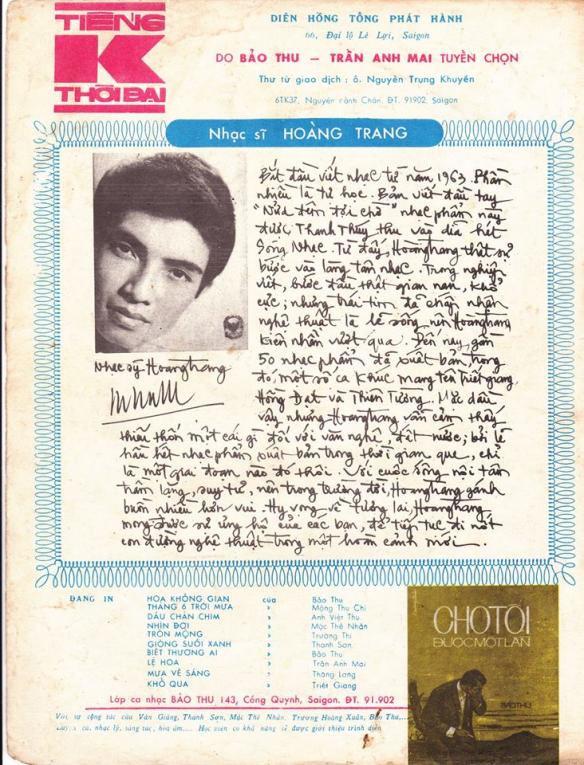 TIẾNG
K
THỜI ĐẠI
DIÊN HỒNG TỔNG PHÁT HÀNH
66, Đại lộ Lê Lợi, Saigon
DO BẢO THU – TRẦN ANH MAI TUYỂN CHỌN
Thư từ giao dịch : ô. Nguyễn Trung Khuyến
6TK37, Nguyễn cảnh Chân. ĐT. 91.902. Saigon
Nhạc sĩ HOÀNG TRANG
Bắt đầu viết nhạc từ năm 1963. Phần
nhiều là tự học. Bản viết đầu tay
"Nửa đêm đợi chờ" nhạc phẩm này
được Thanh Thúy thu vào dĩa hát
Sóng Nhạc. Từ đấy, Hoàngtrang thật sự
bước vào làng tân nhạc. Trong nghiệp
viết, bước đầu thật gian nan, khổ
cực; nhưng trái tim đã chấp nhận
nghệ thuật là lẽ sống nên Hoàngtrang
kiên nhẫn vượt qua. Đến nay, gần
50 nhạc phẩm đã xuất bản, trong
đó, một số ca khúc mang tên Triết giang,
Hồng Đạt và Thiên Tường. Mặc dầu
vậy nhưng Hoàngtrang vẫn cảm thấy
thiếu thốn một cái gì đối với văn nghệ, đất nước; bởi lẽ
hầu hết nhạc phẩm xuất bản trong thời gian qua, chỉ
là một giai đoạn nào đó thôi. Với cuộc sống nội tâm
trầm lặng, suy tư, nên trong trường đời, Hoàngtrang gánh
buồn nhiều hơn vui. Hy vọng về tương lai, Hoàngtrang
mong được sự ủng hộ của các bạn, để tiếp tục đi nốt
con đường nghệ thuật trong một hoàn cảnh mới.
Nhạc sỹ Hoàngtrang
ĐANG IN
HOA KHÔNG GIAN của Bảo Thu
THÁNG 6 TRỜI MƯA » Mộng Thu Chi
DẤU CHÂN CHIM » Anh Việt Thu
NHỊN ĐÓI » Mặc Thế Nhân
TRỐN MỘNG » Trường Thi
GIÒNG SUỐI XANH » Thanh Sơn
BIẾT THƯƠNG AI » Bảo Thu
LỆ HOA » Trần Anh Mai
MƯA VỀ SÁNG » Thăng Long
KHỔ QUA » Triết Giang
Lớp ca nhạc BẢO THU 143, Cống Quỳnh, Saigon. ĐT. 91.902
Với sự cộng tác của Văn Giảng, Thanh Sơn, Mặc Thế Nhân, Trương Hoàng Xuân, Bảo Thu....
Luyện ca, nhạc lý, sáng tác, hòa âm.... Học viên có khả năng sẽ được giới thiệu trình diễn
CHO TÔI
ĐƯỢC MỘT LẦN
BẢO THU